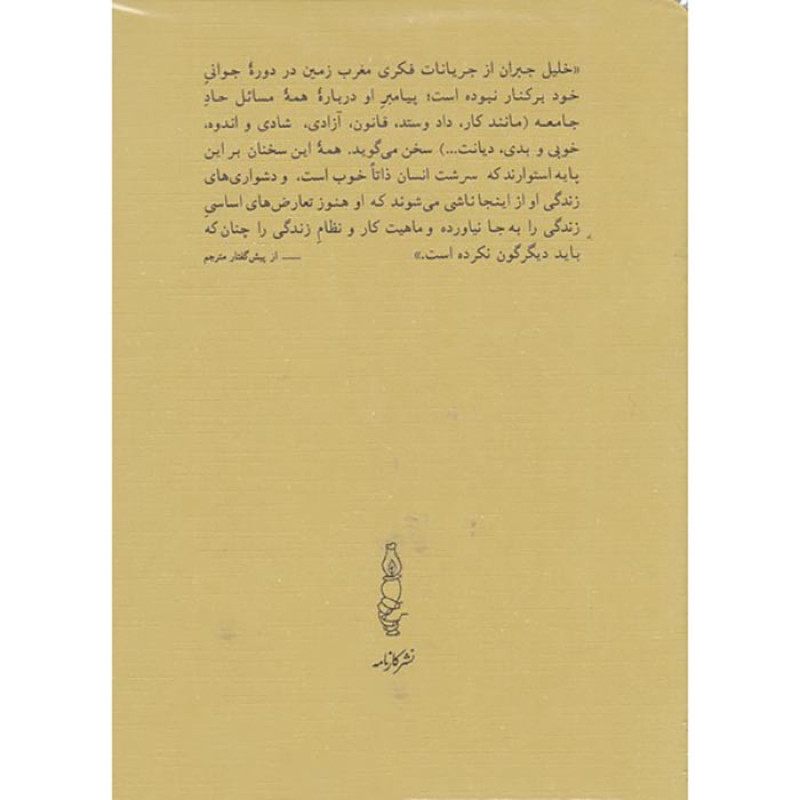 «خلیل جبران از جریانات فکری مغرب زمین در دورهٔ جوانیِ
خود برکنار نبوده است؛ پیامبرِ او دربارهٔ همهٔ مسائل حادِ
جامعه (مانند کار، داد وستد، قانون، آزادی، شادی و اندوه،
خوبی و بدی، دیانت...) سخن می‌گوید. همهٔ این سخنان بر این
پایه استوارند که سرشت انسان ذاتاً خوب است، و دشواری‌های
زندگی او از اینجا ناشی می‌شوند که او هنوز تعارض‌های اساسیِ
زندگی را به جا نیاورده و ماهیت کار و نظامِ زندگی را چنان که
باید دیگرگون نکرده است.» — از پیش‌گفتار مترجم
نشر کارنامه